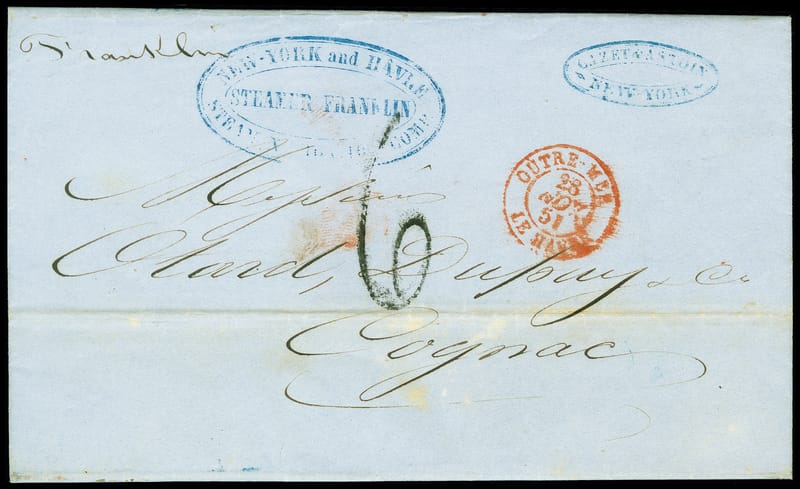 Franklin
NEW-YORK and HAVRE
STEAMER FRANKLIN
STEAM N COMP
CAZET & ASTOIN
NEW-YORK
OUTRE-MER
28
51
LE HAVRE
6
Messieurs
Otard, Dupuy & Co
Cognac